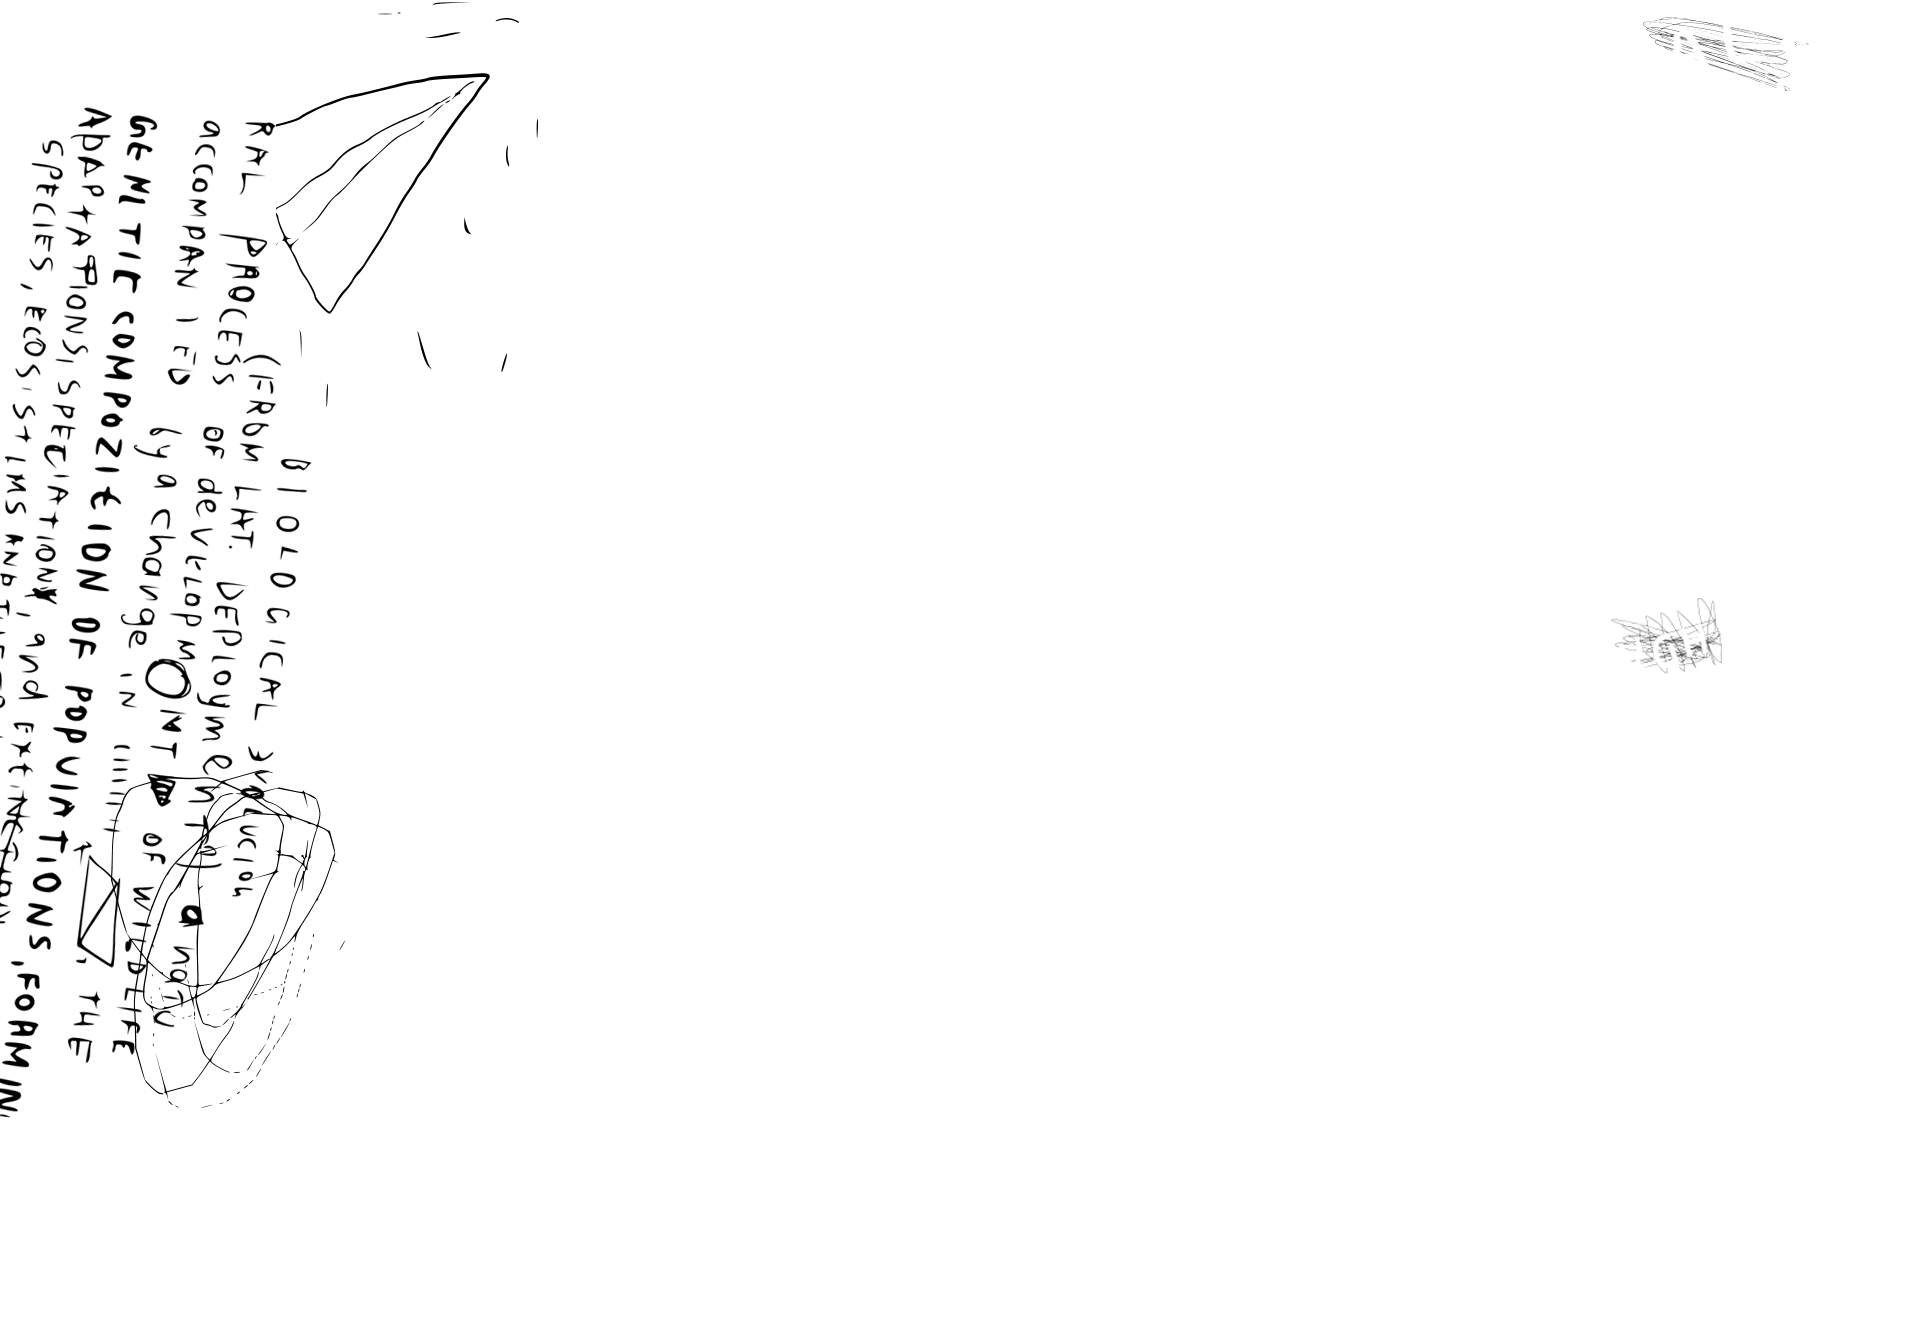 BIOLOGICAL EVOLUCION
(FROM LAT. DEPloymenT) a naTU
RAL PROCESS OF deVELOPMONT OF WILDLIFE
accompaniED by a change IN
GENITIC COMPOZITION OF POPVIATIONS, FOAMIN
ADAPTATIONS, SPECIATION, and EXTINCTION
SPECIES, ECOSISTIMS AND
THE